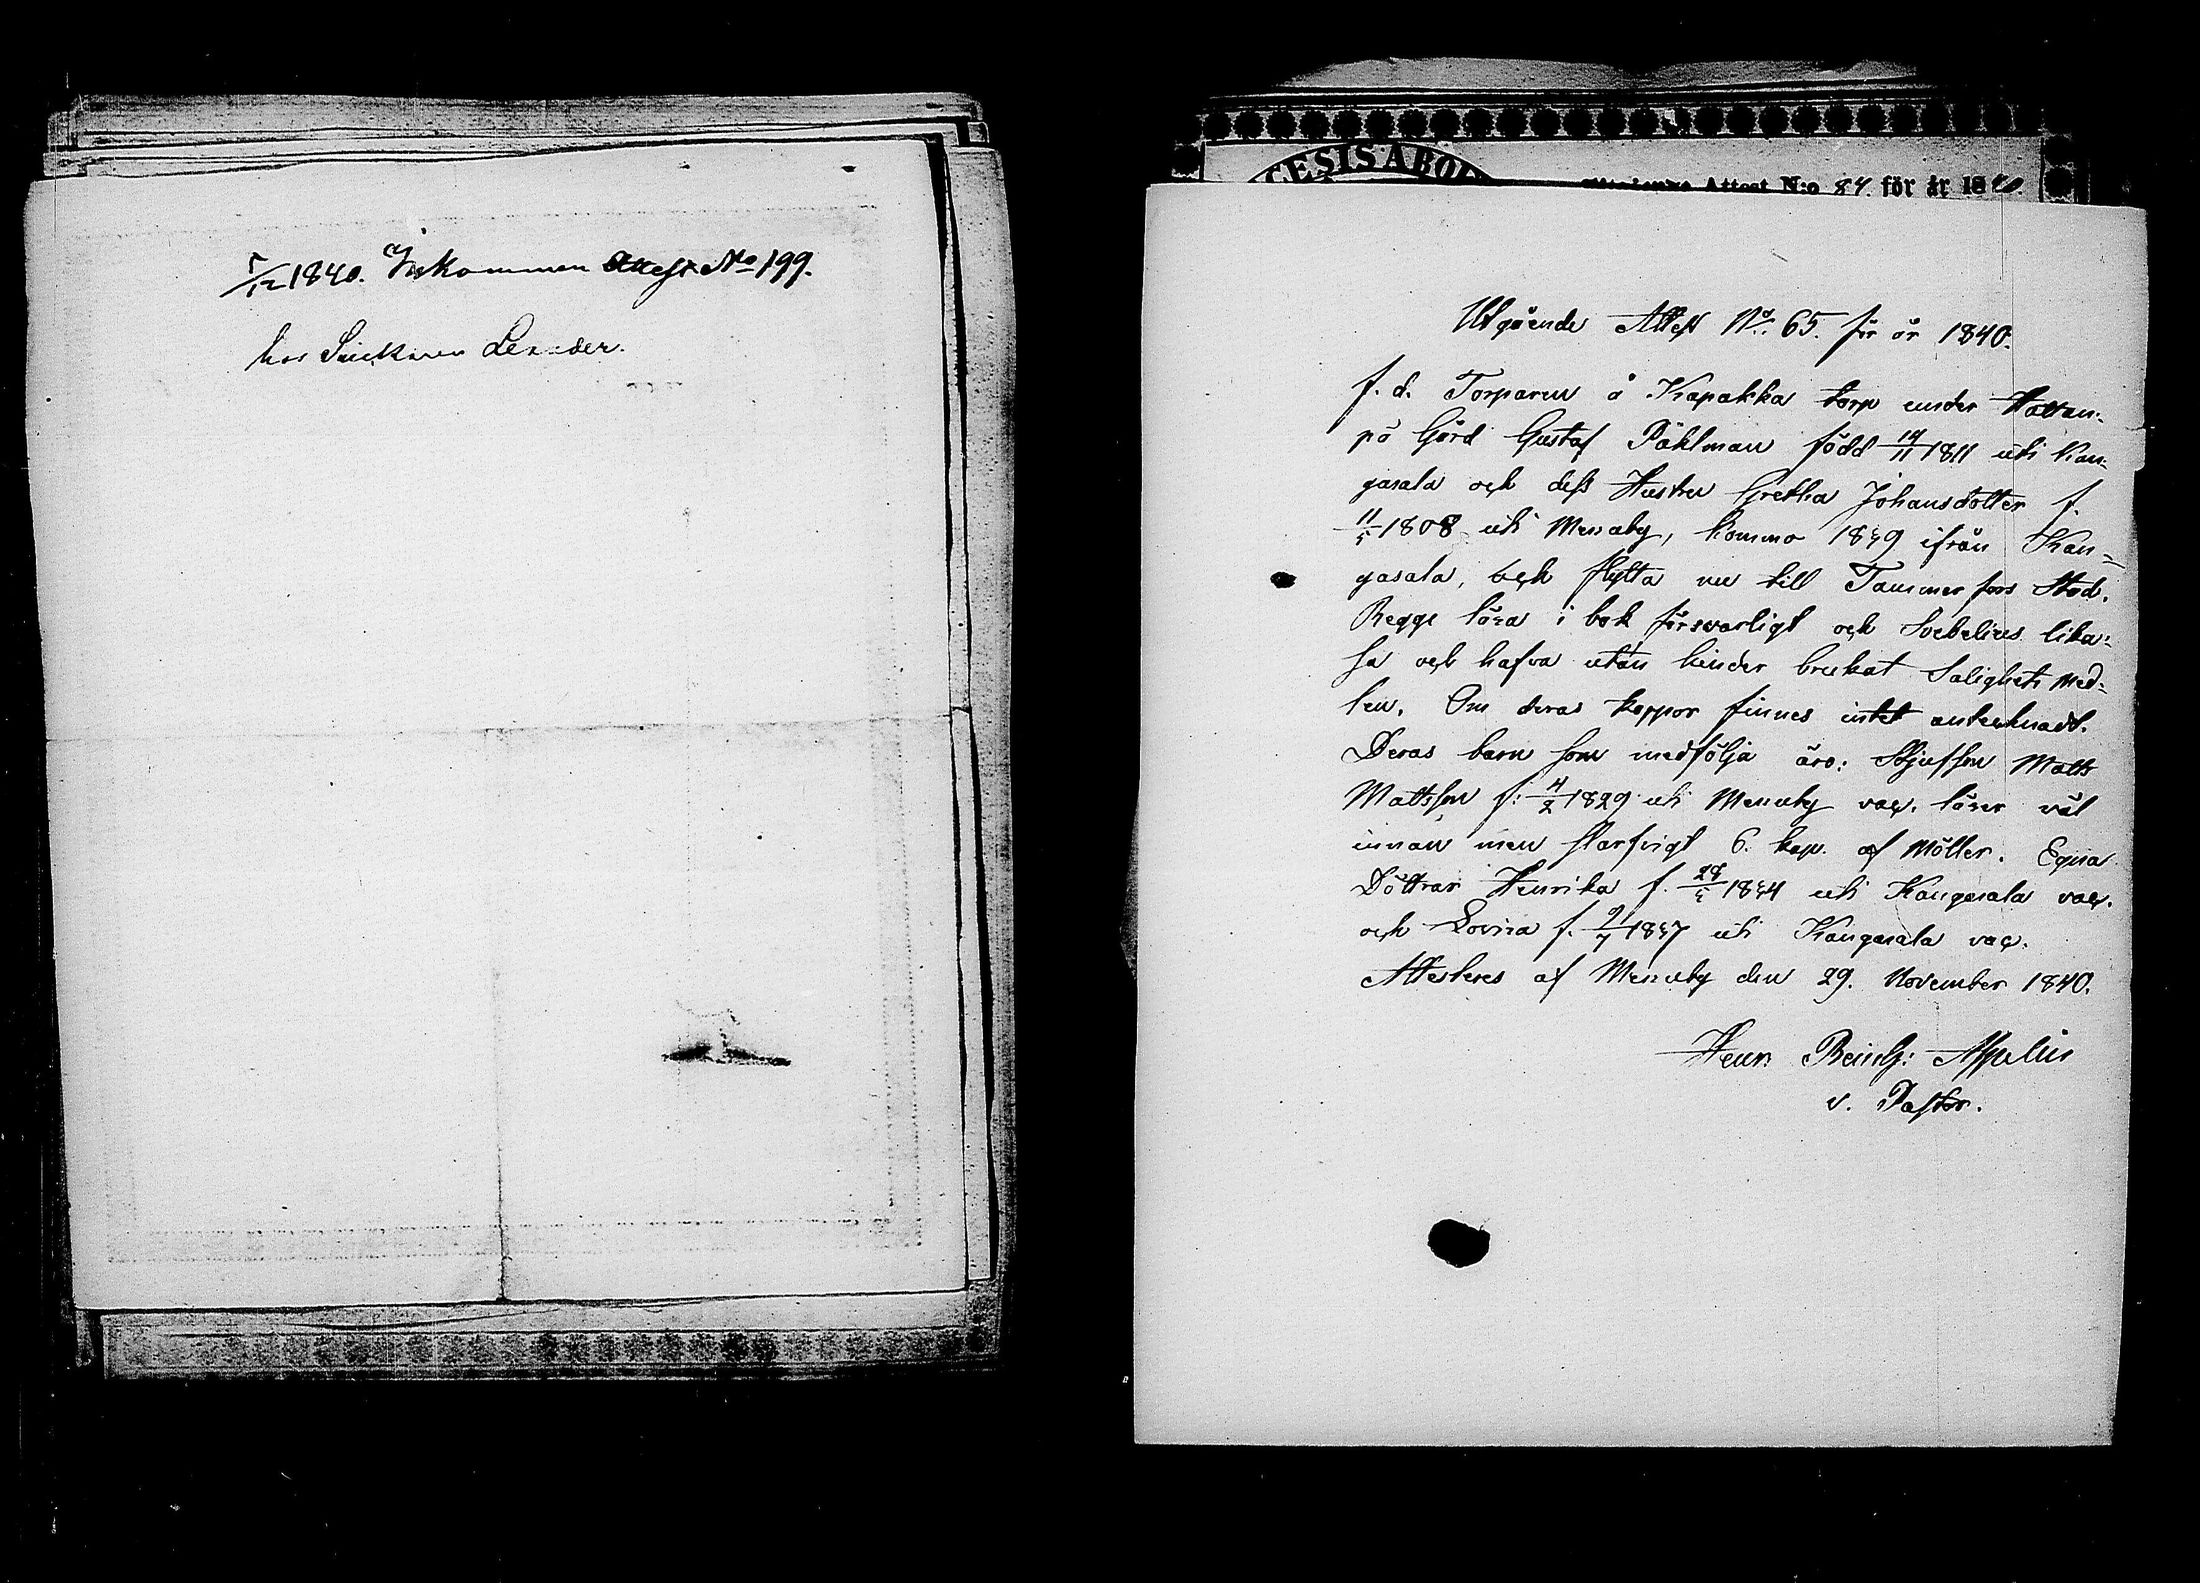 5/12 1840. Inkommen Attest No 199.
hos Snickaren Lexxxder.
CESIS ABOE
Attest N:o 84. för år 1840.
Utgående Attest No 65. för år 1840.
f. d. Torparen å Kapakka torp under Hattan-
pä Gård Gustaf Påhlman född 14/11 1811 uti Kan-
gasala och dess Hustru Gretha Johansdotter f.
11/5 1808 uti Messuby, komma 1839 ifrån Kan-
gasala, och flytta nu till Tammerfors Stad.
Begge läsa i bok försvarligt och Svebelius lika-
så och hafva utan hinder brukat Salighets med-
len. Om deras koppor finnes intet anteknadt.
Deras barn som medfölja äro: Styfson Matts
Mattsson f: 4/2 1829 uti Messuby vac. läser väl
innan men slarfvigt 6. kap. af Möller. Egna
Döttrar Henrika f. 28/5 1834 uti Kangasala vac.
och Lovisa f. 9/7 1837 uti Kangasala vac.
Attesteres af Messuby den 29. November 1840.
Henr: Reinh: Appelin
v. Pastor.